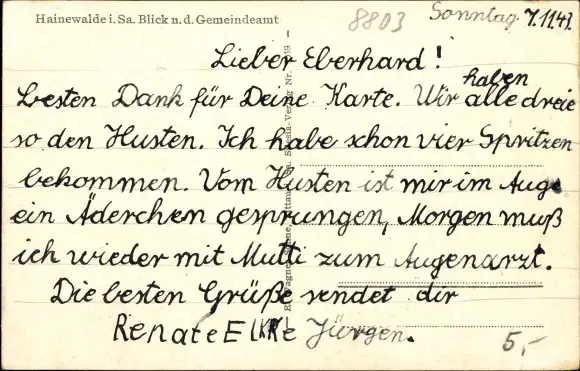 Hainewalde i. Sa. Blick n. d. Gemeindeamt
8803
Sonntag 7.11.43.
Lieber Eberhard!
Besten Dank für Deine Karte. Wir haben alle dreie
so den Husten. Ich habe schon vier Spritzen
bekommen. Vom Husten ist mir im Auge
ein Äderchen gesprungen, Morgen muß
ich wieder mit Mutti zum Augenarzt.
Die besten Grüße sendet dir
Renate Elke Jürgen.
5,-